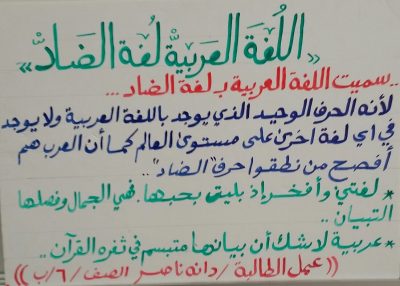 «اللُغَة العَرَبيَّة لُغة الضَادّ»
.. سميت اللغة العربية بـ لغة الضاد ...
لأنه الحرف الوحيد الذي يوجد باللغة العربية ولا يوجد
في اي لغة أخرى على مستوى العالم كما أن العرب هم
أفصح من نطقوا حرف "الضاد" ..
* لغتي وأفخر إذ بليت بحبها. فهي الجمال وفصلها
التبيان ..
* عربية لا شك أن بيانها متبسم في ثغره القرآن ..
((عمل الطالبة / دانه ناصر الصف / ٦ / ب))